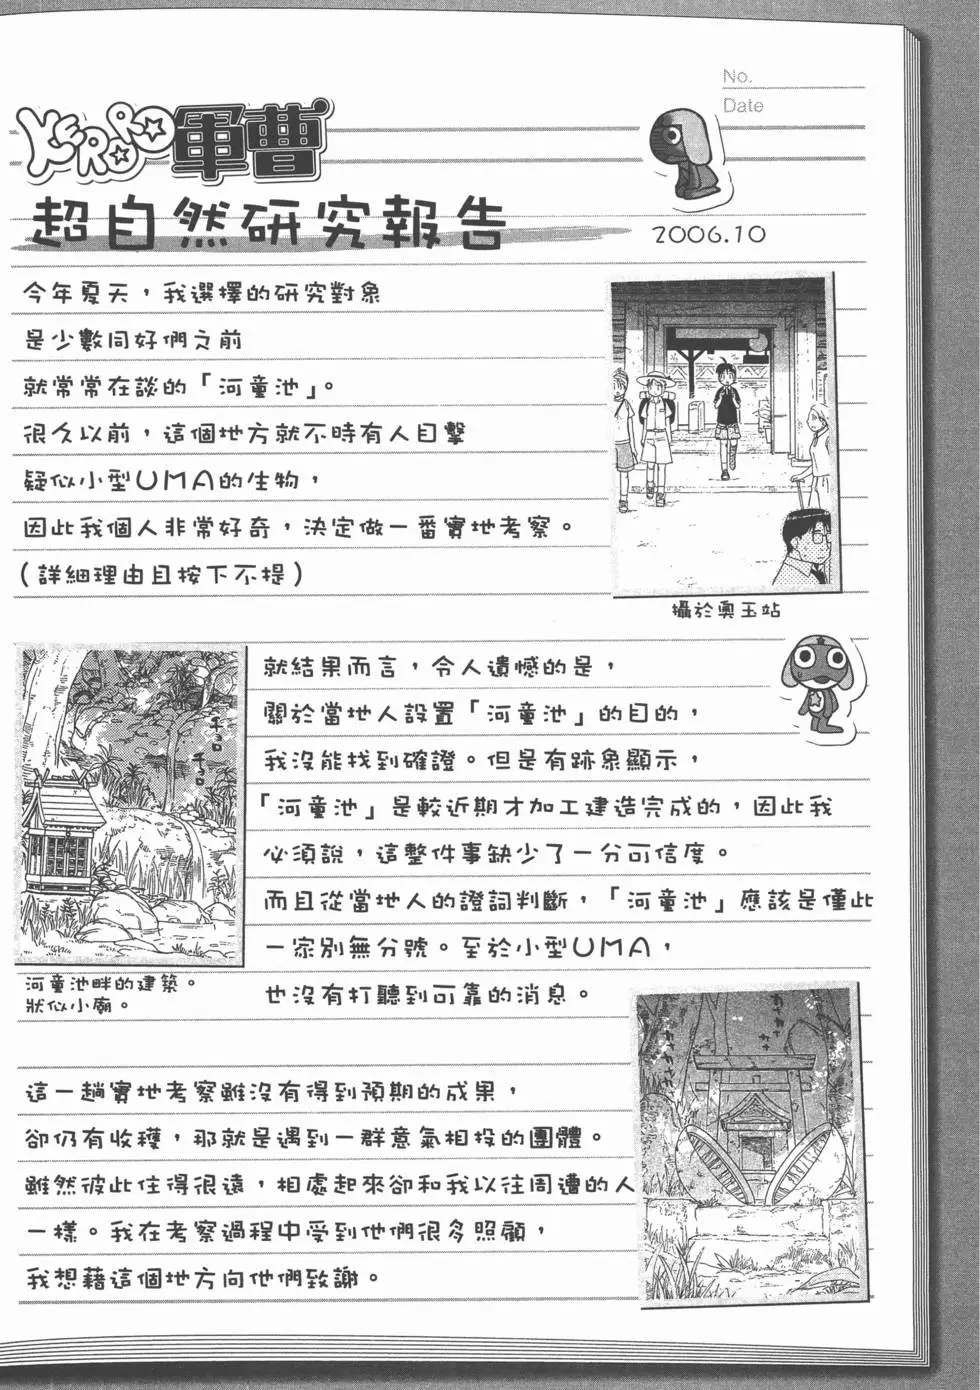 No.
Date
KERORO軍曹
超自然研究報告
2006.10
今年夏天，我選擇的研究對象
是少數同好們之前
就常常在談的「河童池」。
很久以前，這個地方就不時有人目擊
疑似小型UMA的生物，
因此我個人非常好奇，決定做一番實地考察。
（詳細理由且按下不提）
攝於奧玉站
就結果而言，令人遺憾的是，
關於當地人設置「河童池」的目的，
我沒能找到確證。但是有跡象顯示，
「河童池」是較近期才加工建造完成的，因此我
必須說，這整件事缺少了一分可信度。
而且從當地人的證詞判斷，「河童池」應該是僅此
一家別無分號。至於小型UMA，
也沒有打聽到可靠的消息。
チョロ
チョロ
河童池畔的建築。
狀似小廟。
這一趟實地考察雖沒有得到預期的成果，
卻仍有收穫，那就是遇到一群意氣相投的團體。
雖然彼此住得很遠，相處起來卻和我以往周遭的人
一樣。我在考察過程中受到他們很多照顧，
我想藉這個地方向他們致謝。